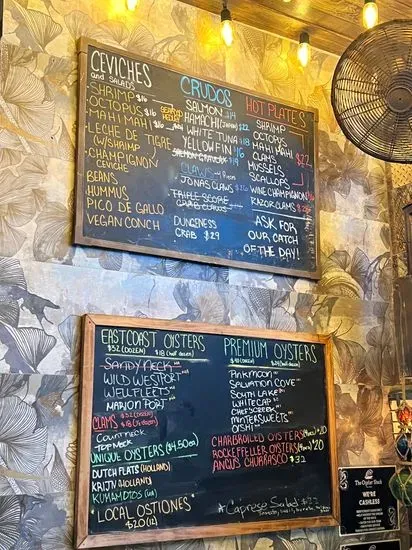 CEVICHES
and SALADS
-SHRIMP $16
-OCTOPUS $16
-MAHI MAHI $16
-LECHE DE TIGRE
(w/SHRIMP
-CHAMPIGNON
CEVICHE
BEANS
HUMMUS
PICO DE GALLO
VEGAN CONCH
CRUDOS
SALMON $14
HAMACHI (JAPAN) $22
WHITE TUNA $18
YELLOWFIN $16
SALMON GRAVLAX
CLAWS
JONAS CLAWS
TRIPLE SCORE
CRAB CLAWS
DUNGENESS
CRAB $29
HOT PLATES
SHRIMP
OCTOPUS
MAHI MAHI
CLAMS $22
MUSSELS
SCALLOPS
WINE CHAMPIGNON
RAZOR CLAMS
ASK FOR
OUR CATCH
OF THE DAY!
EASTCOAST OYSTERS
$32 (DOZEN) $18 (half dozen)
SANDY NECK MA
WILD WESTPORT
WELLFLEETS MA
MARION PORT
CLAMS $32 (DOZEN)
$18 (½ dozen)
COUNTNECK
TOP NECK
UNIQUE OYSTERS ($4.50 ea)
DUTCH FLATS (HOLLAND)
KAIJN (HOLLAND)
KUMAMOTOS
"LOCAL OSTIONES"
$20 (12)
PREMIUM OYSTERS
PINKMOON
SALVATION COVE
SOUTH LAKE
WHITECAP
CHEF SCREEK
WINTERSWEETS
DISHI
CHARBROILED OYSTERS $20
ROCKEFELLER OYSTERS $20
ANGUS CHURRASCO $32
*Caprese Salad $22
The Oyster Shack
WE'RE
CASHLESS